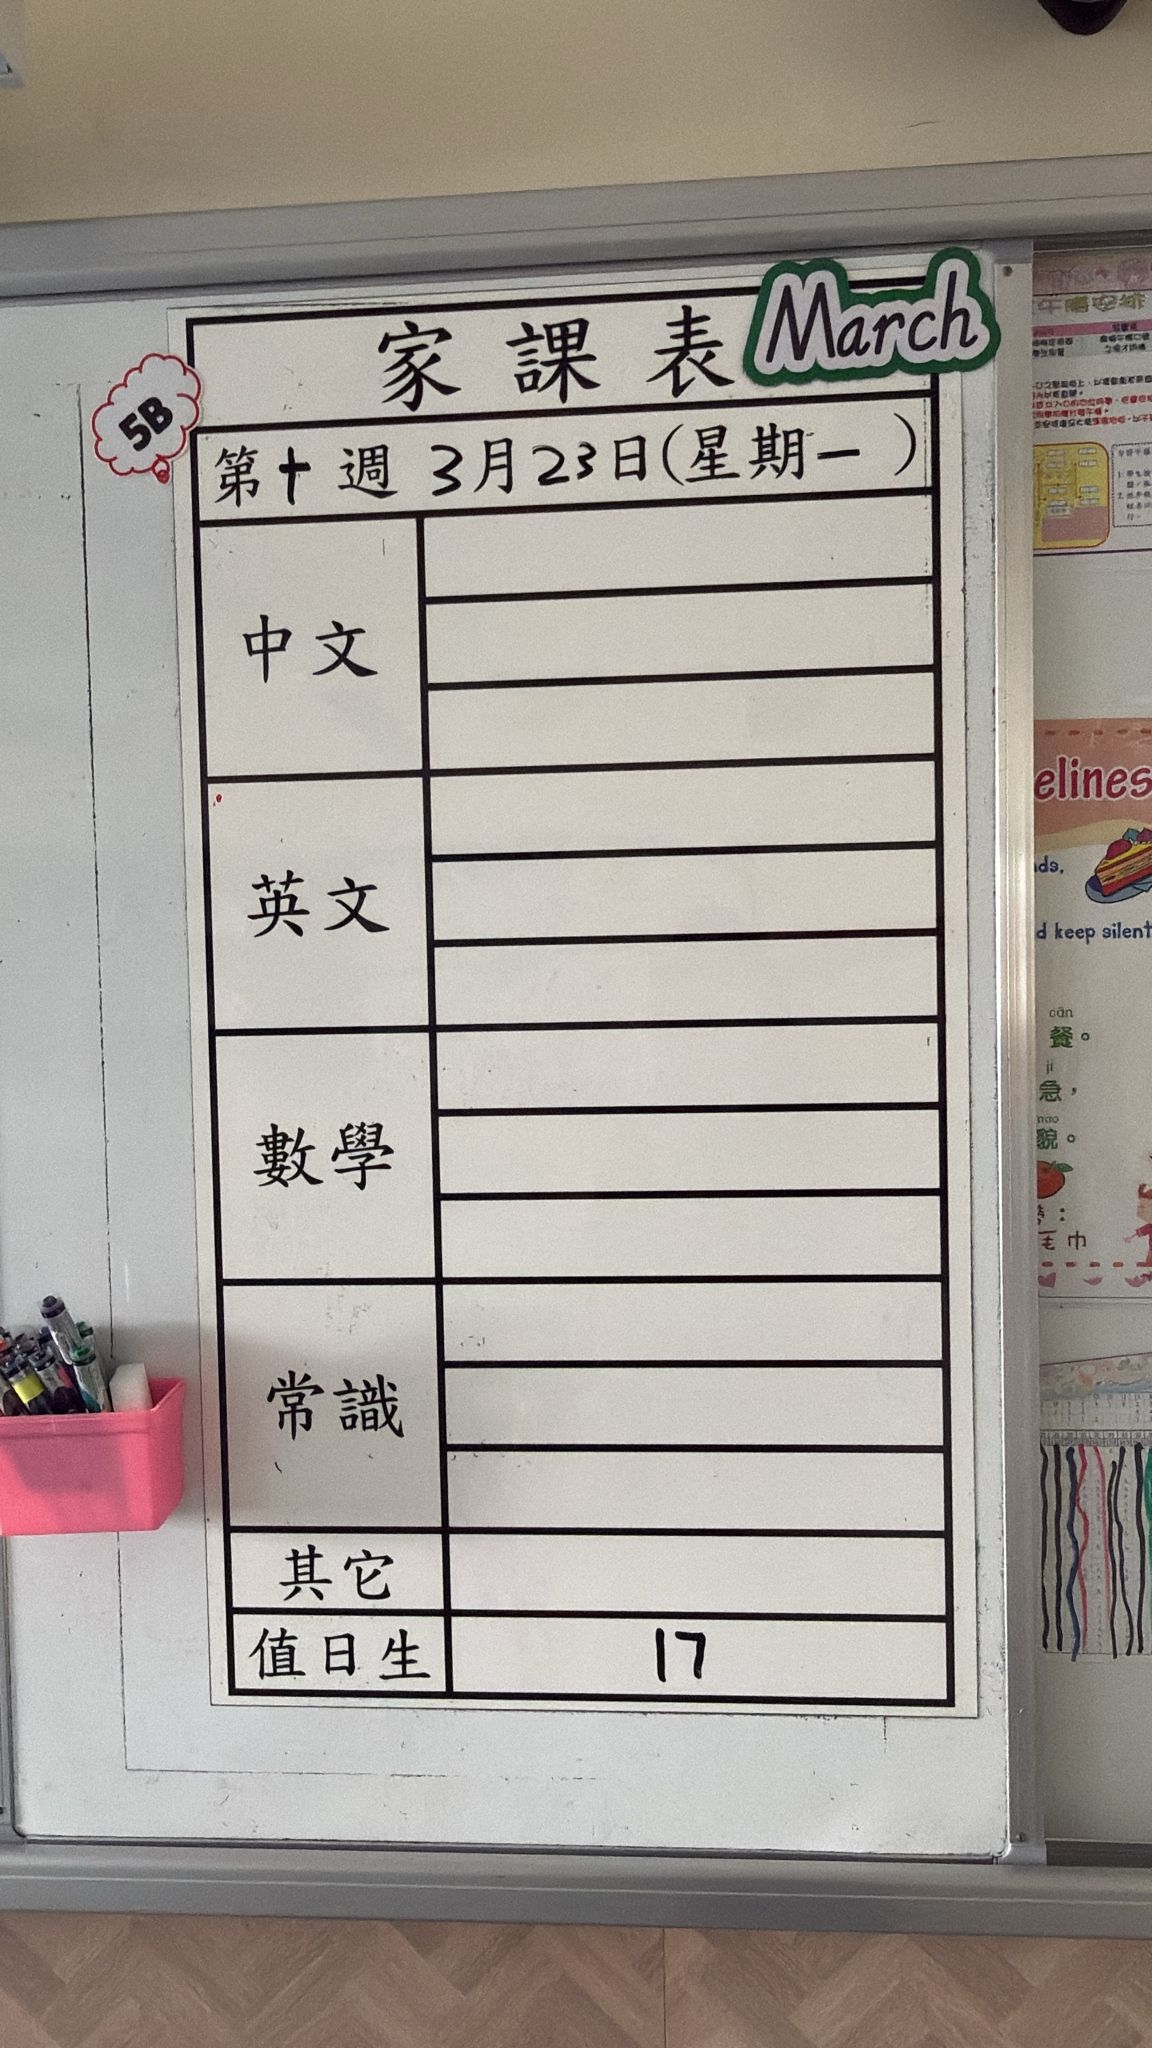 March
家課表
5B
第十週 3月23日(星期一 )
中文
英文
數學
常識
其它
值日生 17
elines
d keep silent
cān
餐。
jí
急，
貌。
毛巾